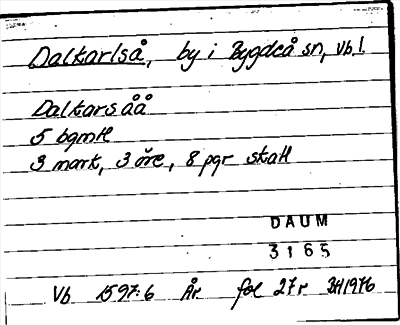 Dalkarlså, by i Bygdeå sn, Vb l.
Dalkarsåå
5 bgmtl
3 mark, 3 öre, 8 pgr skatt
DAUM
3165
Vb 1597:6 År fol 27r